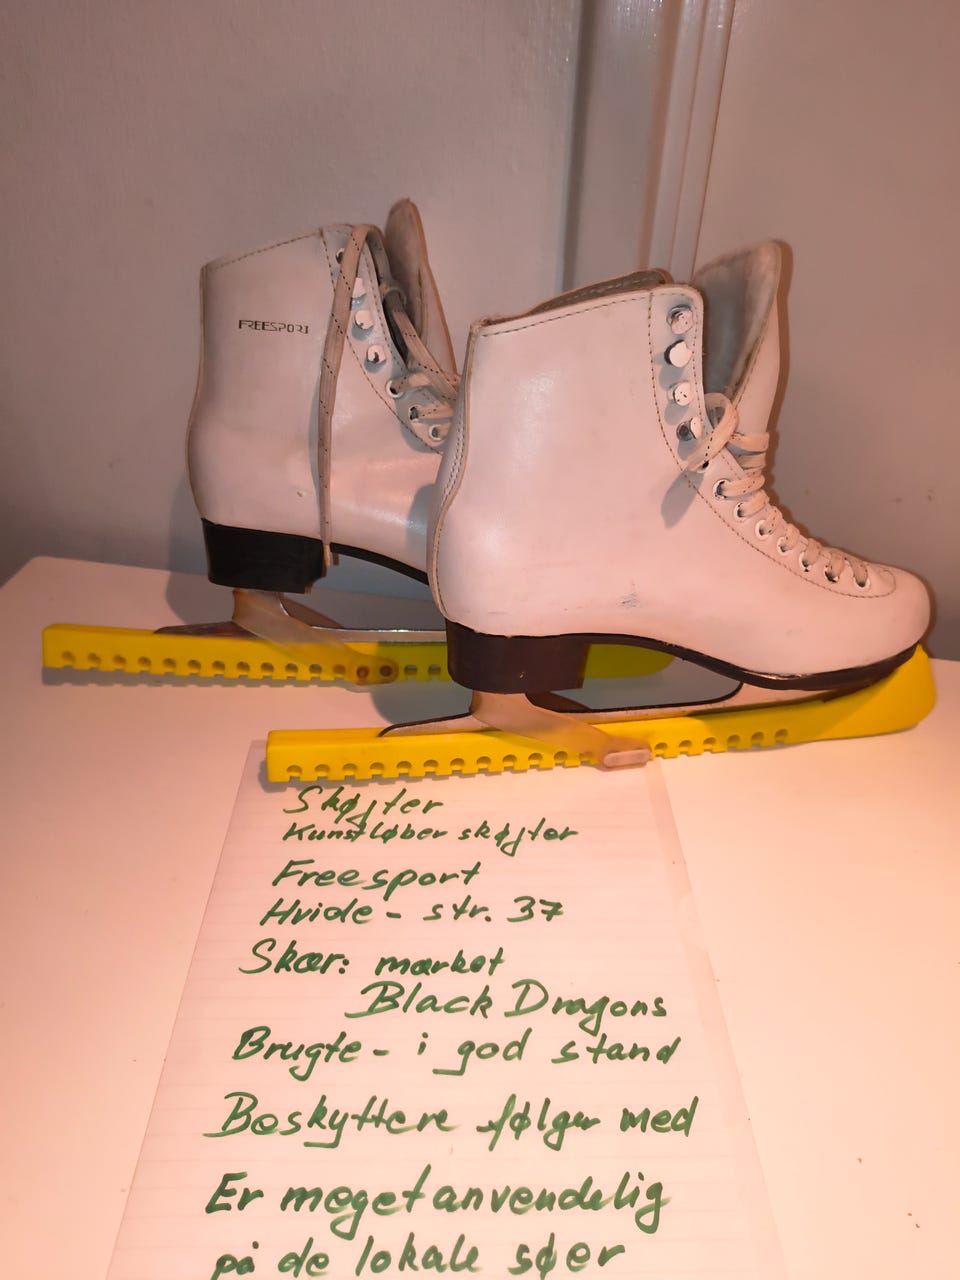 FREESPORT
Skøjter
Kunstløber skøjter
Freesport
Hvide - str. 37
Skær: mærket
Black Dragons
Brugte - i god stand
Beskyttere følger med
Er meget anvendelig
på de lokale søer